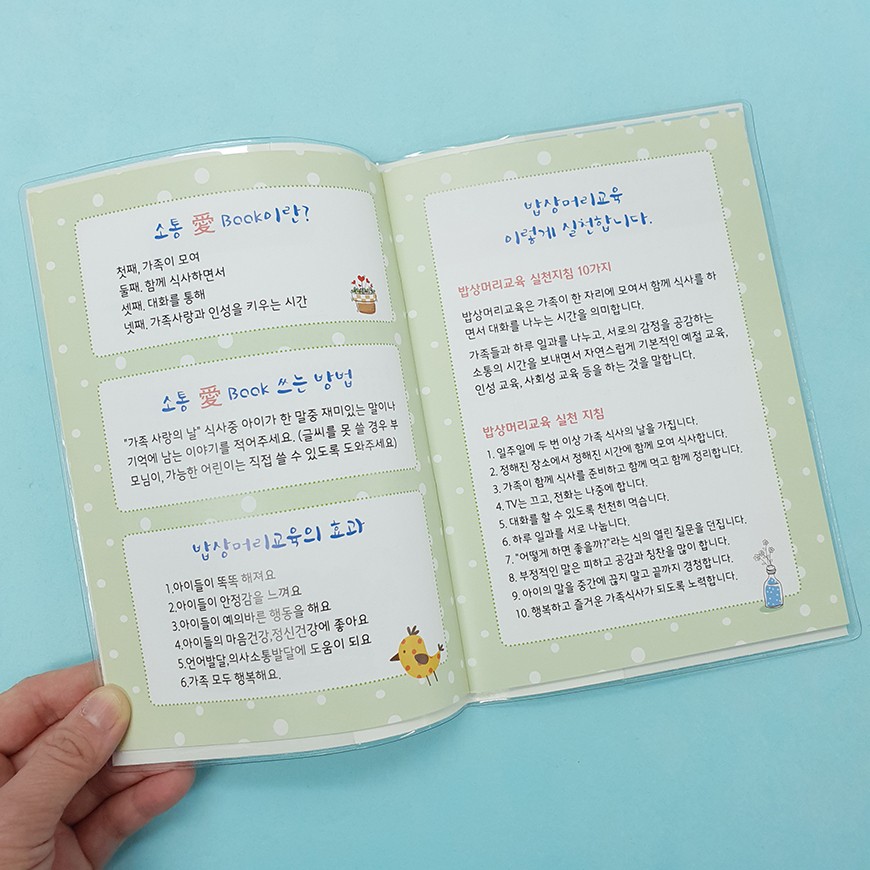 소통 愛 Book이란?
첫째, 가족이 모여
둘째, 함께 식사하면서
셋째, 대화를 통해
넷째, 가족사랑과 인성을 키우는 시간
소통 愛 Book 쓰는 방법
"가족 사랑의 날" 식사중 아이가 한 말중 재미있는 말이나
기억에 남는 이야기를 적어주세요. (글씨를 못 쓸 경우 부
모님이, 가능한 어린이는 직접 쓸 수 있도록 도와주세요)
밥상머리교육의 효과
1.아이들이 똑똑 해져요
2.아이들이 안정감을 느껴요
3.아이들이 예의바른 행동을 해요
4.아이들의 마음건강,정신건강에 좋아요
5.언어발달,의사소통발달에 도움이 되요
6.가족 모두 행복해요.
밥상머리교육
이렇게 실천합니다.
밥상머리교육 실천지침 10가지
밥상머리교육은 가족이 한 자리에 모여서 함께 식사를 하
면서 대화를 나누는 시간을 의미합니다.
가족들과 하루 일과를 나누고, 서로의 감정을 공감하는
소통의 시간을 보내면서 자연스럽게 기본적인 예절 교육,
인성 교육, 사회성 교육 등을 하는 것을 말합니다.
밥상머리교육 실천 지침
1. 일주일에 두 번 이상 가족 식사의 날을 가집니다.
2. 정해진 장소에서 정해진 시간에 함께 모여 식사합니다.
3. 가족이 함께 식사를 준비하고 함께 먹고 함께 정리합니다.
4. TV는 끄고, 전화는 나중에 합니다.
5. 대화를 할 수 있도록 천천히 먹습니다.
6. 하루 일과를 서로 나눕니다.
7. "어떻게 하면 좋을까?"라는 식의 열린 질문을 던집니다.
8. 부정적인 말은 피하고 공감과 칭찬을 많이 합니다.
9. 아이의 말을 중간에 끊지 말고 끝까지 경청합니다.
10. 행복하고 즐거운 가족식사가 되도록 노력합니다.